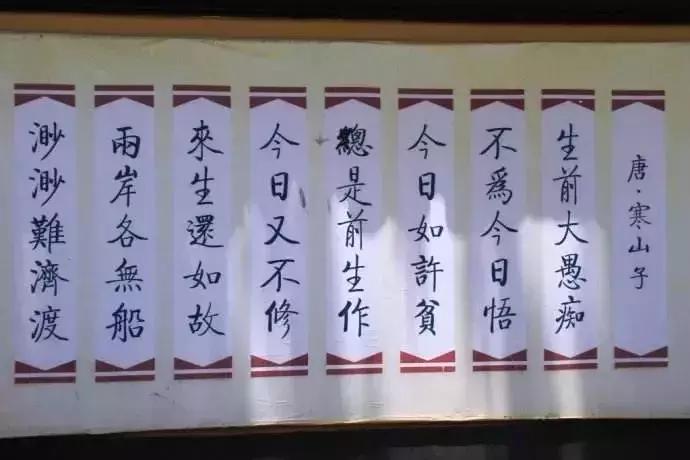 唐·寒山子
生前大愚痴
不爲今日悟
今日如許貧
總是前生作
今日又不修
來生還如故
兩岸各無船
渺渺難濟渡